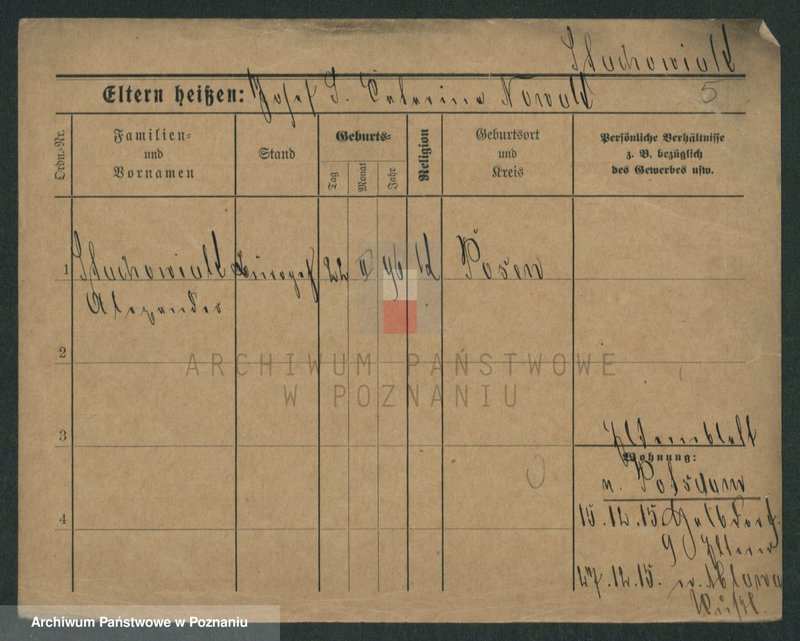 Stachowiak
Eltern heißen: Josef S. Caterina Nowak 5
Ordn.-Nr.
Familien-
und
Vornamen
Stand
Geburts-
Tag
Monat
Jahr
Religion
Geburtsort
und
Kreis
Persönliche Verhältnisse
z. B. bezüglich
des Gewerbes usw.
1 Stachowiak 22 II 96 K Posen
Alexander
2
ARCHIWUM PAŃSTWOWE
W POZNANIU
3
Wohnung:
n. Potsdam
4
15.12.15
9 Eltern
27.12.15.
Archiwum Państwowe w Poznaniu